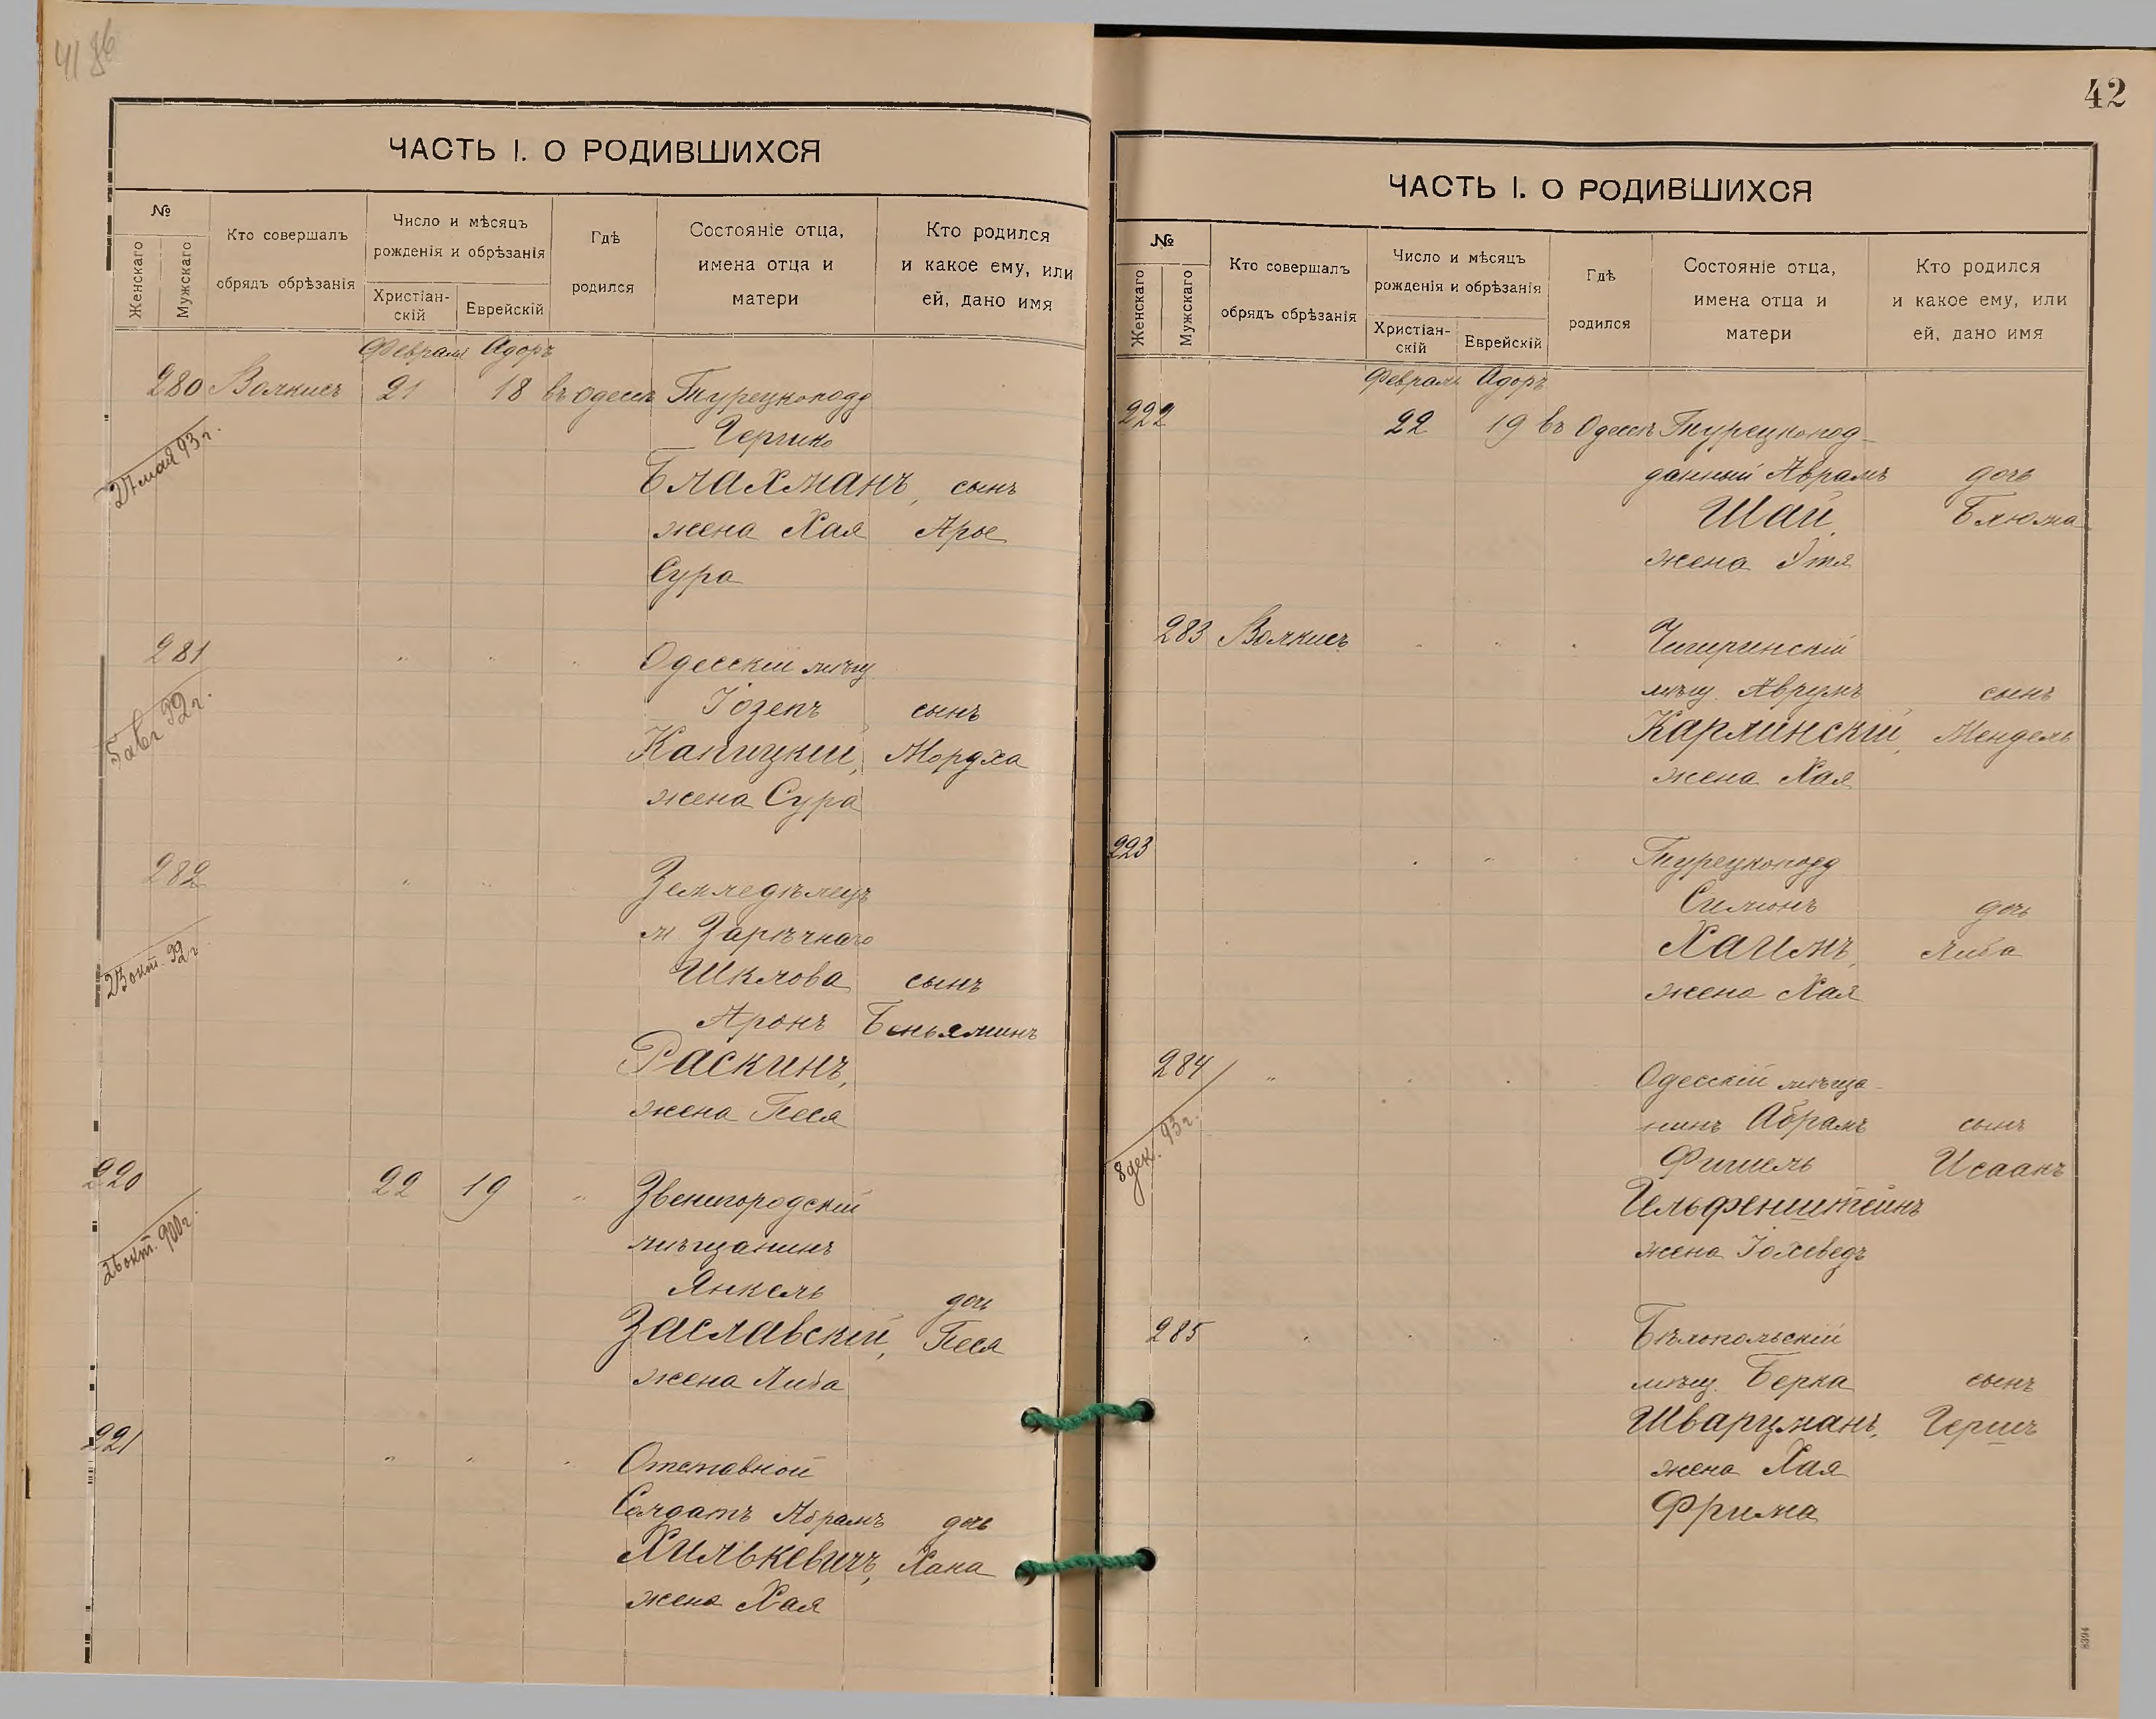 41 86
ЧАСТЬ I. О РОДИВШИХСЯ
№
Женскаго
Мужскаго
Кто совершалъ
обрядъ обрѣзанія
Число и мѣсяцъ
рожденія и обрѣзанія
Христіан-
скій
Еврейскій
Гдѣ
родился
Состояніе отца,
имена отца и
матери
Кто родился
и какое ему, или
ей, дано имя
Февраль Адоръ
280 Волкисъ 21 18 въ Одессѣ Турецкоподд
Гершко
27 мая 93 г.
Блахманъ, сынъ
жена Хая Арье
Сура
281 " " " Одесскій мѣщ
Іозепъ сынъ
92 г.
Капицкій, Мордха
жена Сура
282 " " Земледѣлецъ
м Зарѣчнаго
23 окт. 92 г
Шклова сынъ
Аронъ Беньяминъ
Раскинъ,
жена Песя
220 22 19 " Звенигородскій
мѣщанинъ
26 окт. 900 г.
Янкель дочь
Заславскій, Песя
жена Либа
221 " " " Отставной
Солдатъ Абрамъ дочь
Хилькевичъ, Хана
жена Хая
42
ЧАСТЬ I. О РОДИВШИХСЯ
№
Женскаго
Мужскаго
Кто совершалъ
обрядъ обрѣзанія
Число и мѣсяцъ
рожденія и обрѣзанія
Христіан-
скій
Еврейскій
Гдѣ
родился
Состояніе отца,
имена отца и
матери
Кто родился
и какое ему, или
ей, дано имя
Февраль Адоръ
222 22 19 въ Одессѣ Турецкопод-
данный Аврамъ дочь
Шаи, Блюма
жена Этя
283 Волкисъ " " " Чигиринскій
мѣщ. Аврумъ сынъ
Карлинскій, Мендель
жена Хая
223 " " " Турецкоподд
Симонъ дочь
Хаимъ, Либа
жена Хая
284 " " " Одесскій мѣща-
нинъ Абрамъ сынъ
8 дек. 93 г.
Фишель Исаакъ
Гельфенштейнъ
жена Іохеведъ
285 " " " " Бѣлопольскій
мѣщ. Берка сынъ
Шварцманъ, Гершъ
жена Хая
Фрима
8394